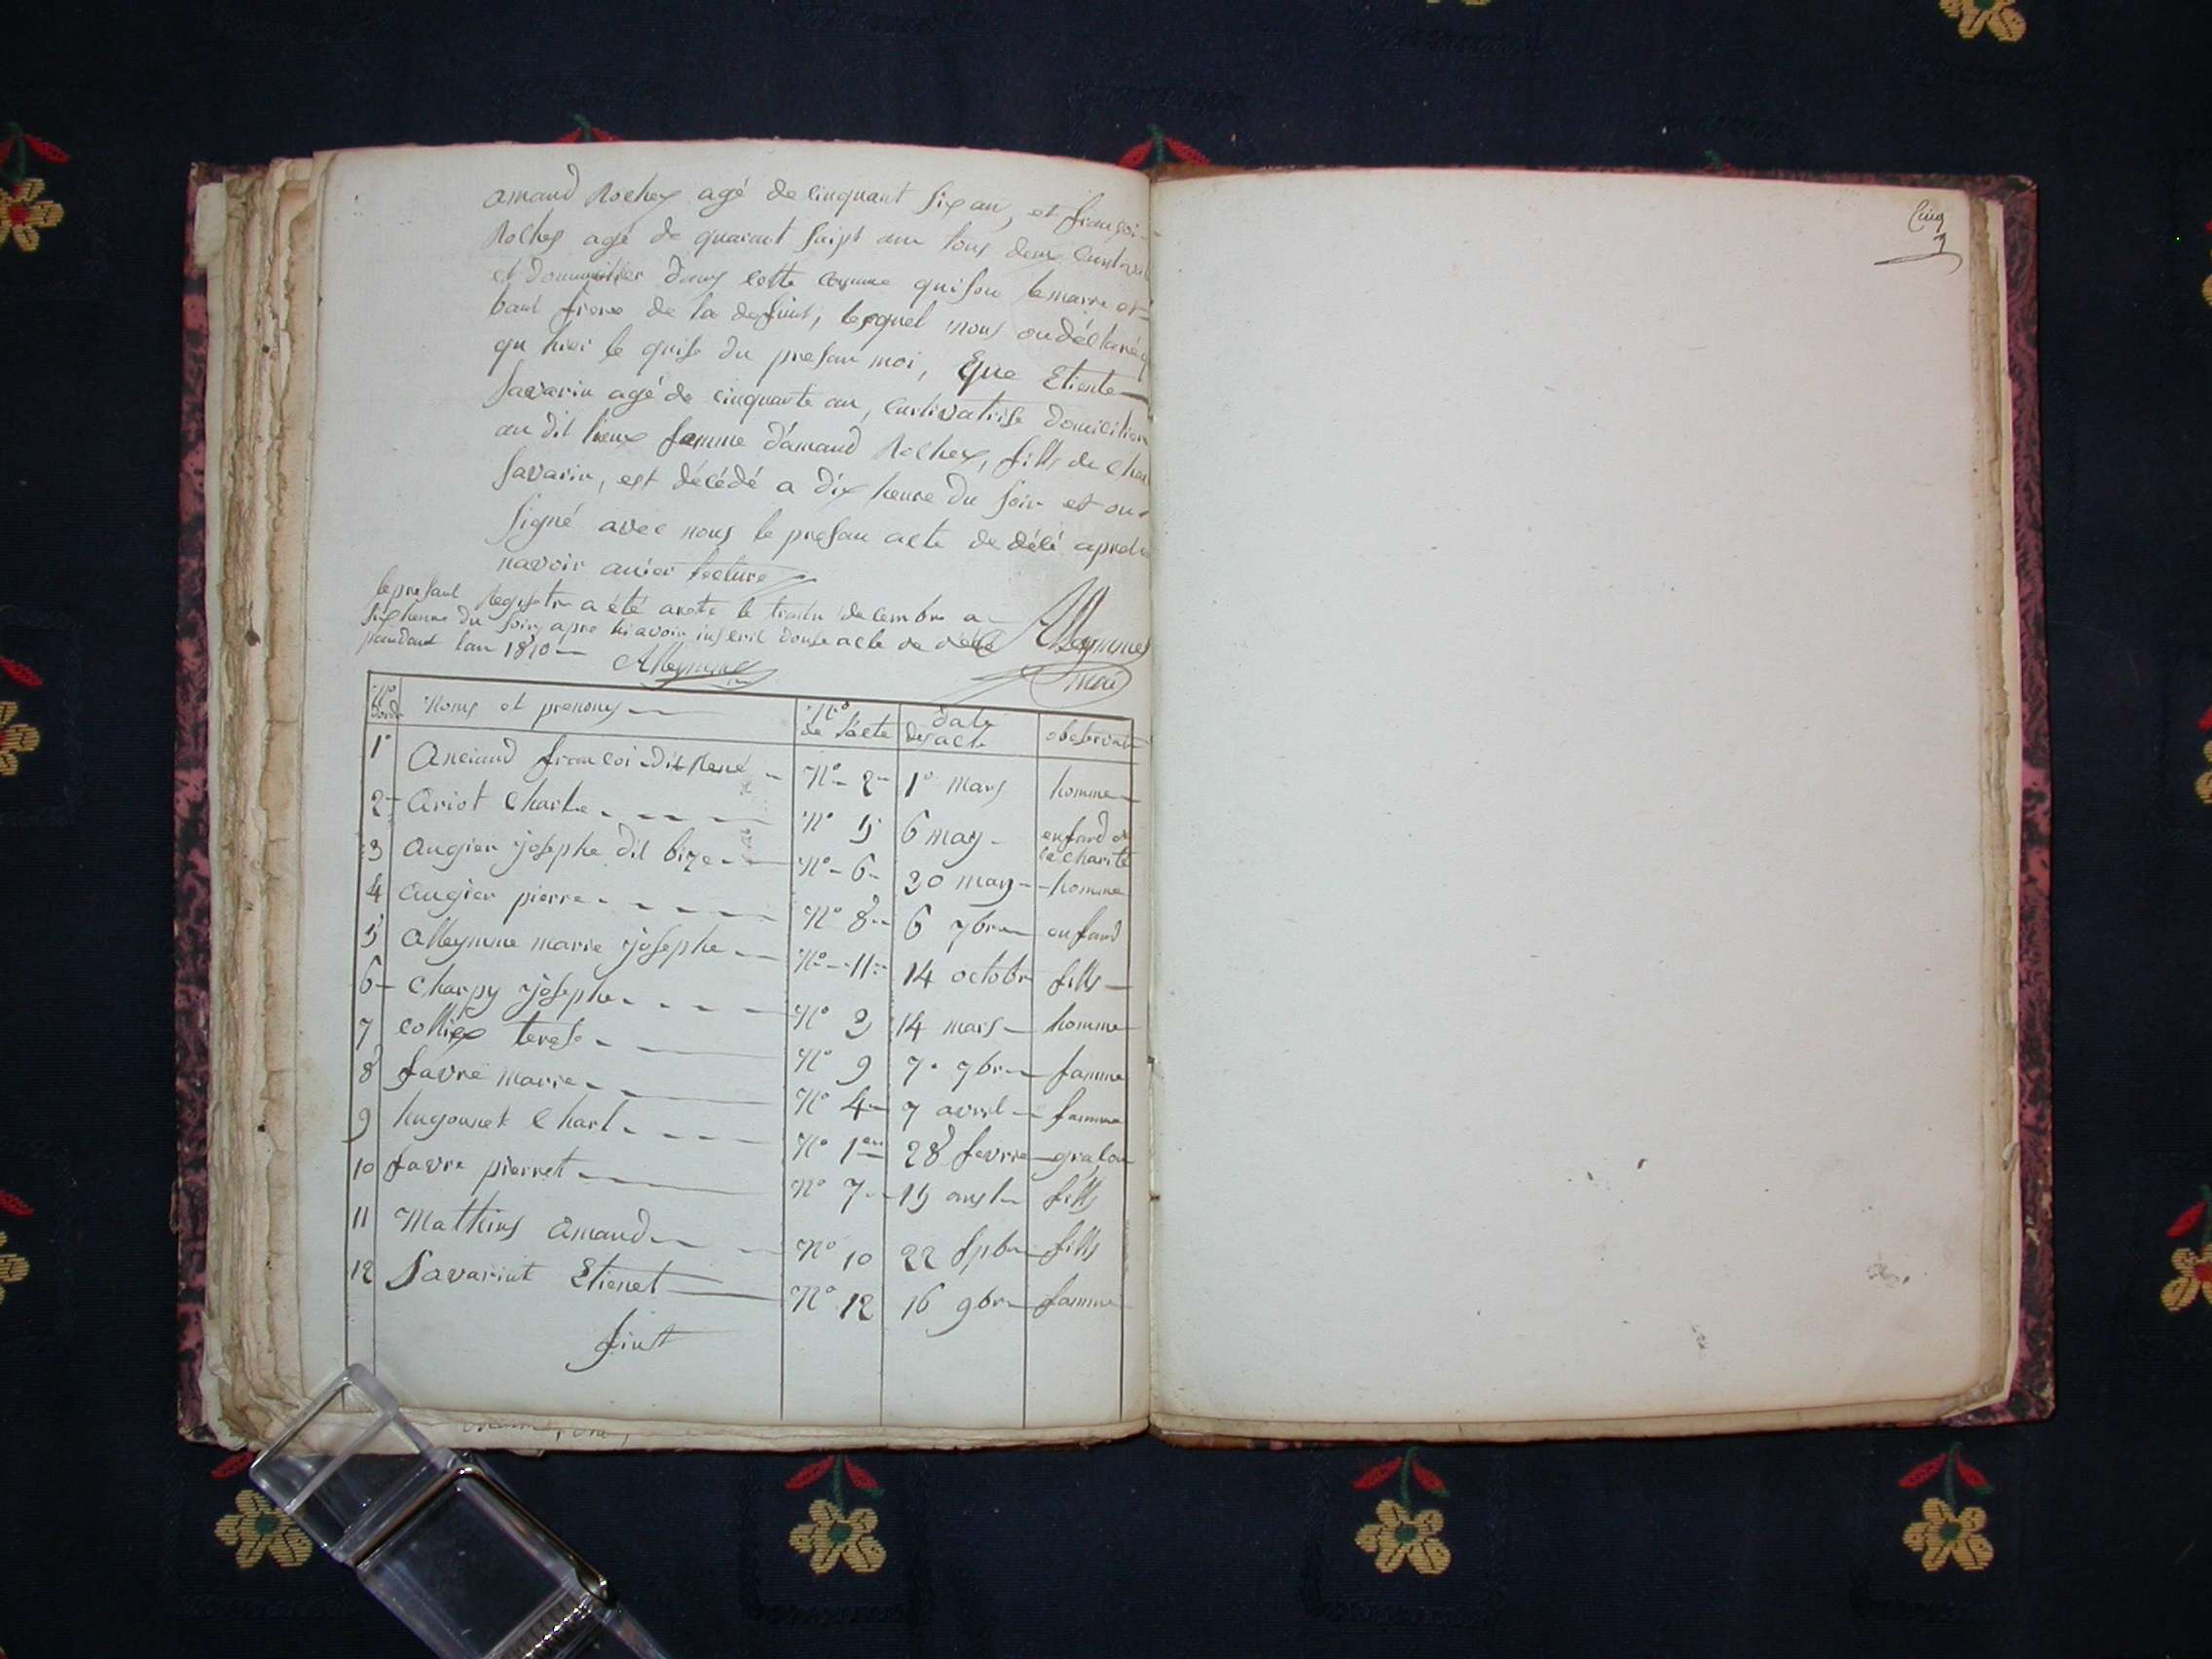 amand Rochex agé de cinquant six an, et françoi
Rochex agé de quarant saipt ann tous deux
et dans cette comune qui son lemarre et
baut frere de la defunt, lesquel nous on déclaré
qu hier le quise du presan moi, Que Etiente
Savarin agé de cinquante an, cultivatrise
au dit lieux famme d'amaud Rochex, fills de
Savarin, est décédé a dix heure du soir et on
signé avec nous le presan acte de
navoir lecture
le presant Registre a été areté le decembre a
six heure du soir apre hi avoir inserit douse acte de
pandant lan 1810
Alleymme
Alleymme
mai
N° Noms et prenoms N° de l'acte date des acte
1° Anciaud françoi dit René N° 2 1° mars homme
2 ariot Charle N° 5 6 may enfand de la charité
3 augier josephe dit bize N° 6 30 may homme
4 augier pierre N° 8 6 7bre enfand
5 alleymme marie josephe N° 11 14 octobr fills
6 Charpy josephe N° 3 14 mars homme
7 collix terese N° 9 7 7bre famme
8 favre marie N° 4 7 avril famme
9 hugonnet Charl N° 1er 28 fevrie
10 favre pierret N° 7 15 fills
11 Mathius amaud N° 10 22 fills
12 Savarint Etienet N° 12 16 9bre famme
fint
Cinq